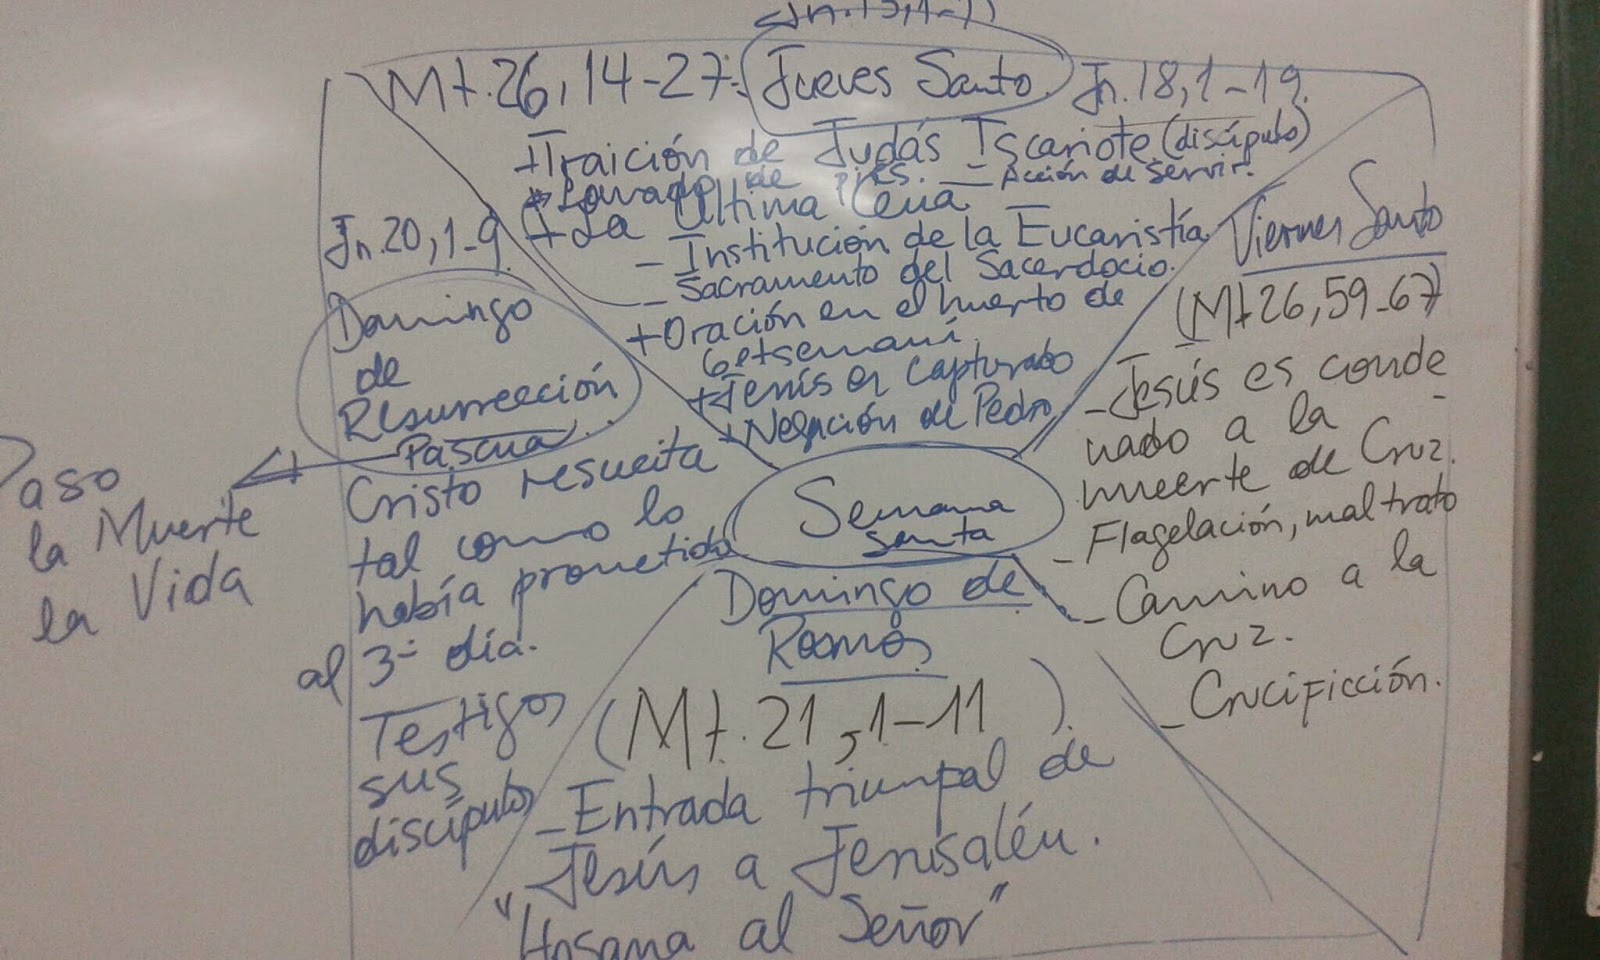 Mt.26,14-27: Jueves Santo. Jn.18,1-19.
+Traición de Judás Iscariote (discípulo)
*Lavado de pies. - Acción de servir.
+La Última Cena
- Institución de la Eucaristía
- Sacramento del Sacerdocio.
+Oración en el huerto de
Getsemaní.
+Jesús es capturado
+Negación de Pedro
Viernes Santo
(Mt 26,59-67)
-Jesús es conde
nado a la
muerte de Cruz.
- Flagelación, mal trato
- Camino a la
Cruz.
- Crucificción.
Semana
Santa
Domingo de
Ramos
(Mt. 21,1-11)
-Entrada triumpal de
Jesús a Jerusalén.
"Hosana al Señor"
Jn.20,1-9.
Domingo
de
Resurrección
Pascua
Cristo resucita
tal como lo
había prometido
al 3- día.
Testigos
sus
discípulos
Paso
la Muerte
la Vida